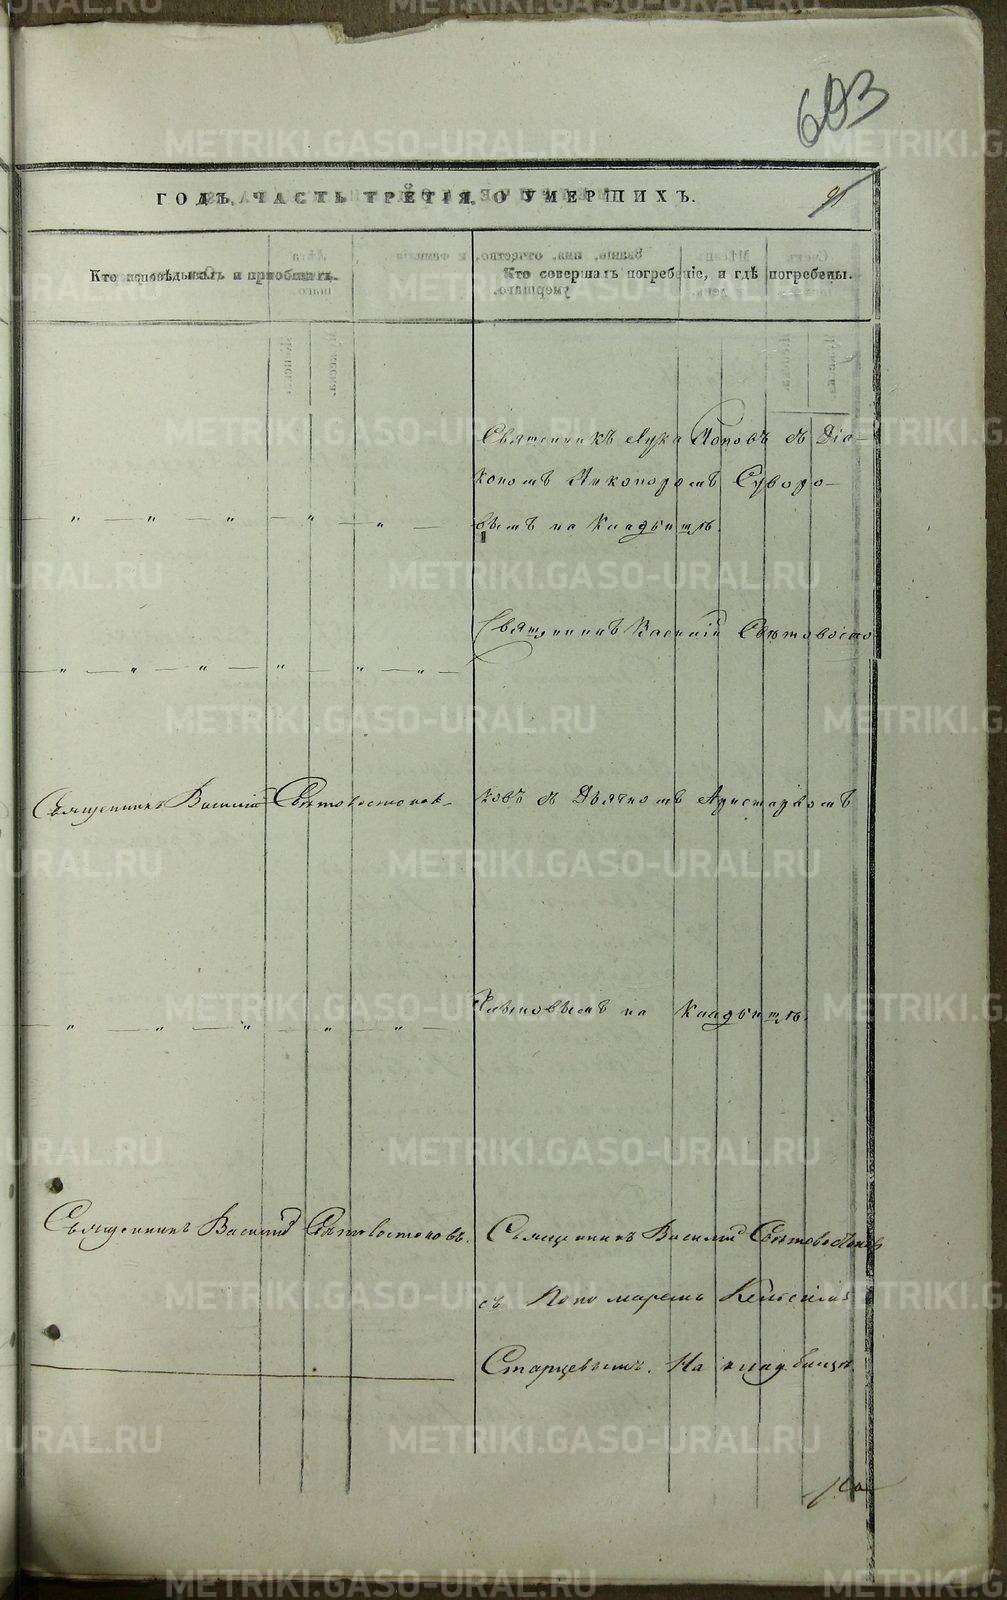 603
ГОДЪ, ЧАСТЬ ТРЕТІЯ, О УМЕРШИХЪ.
Кто исповѣдывалъ и пріобщалъ.
Кто совершалъ погребеніе, и гдѣ погребены.
Священникъ Лука Поповъ съ Діа-
кономъ Никаноромъ Суворо-
— „ — „ — „ — „ — „ —
вымъ на кладбищѣ.
Священникъ Василій Свѣтовосто
— „ — „ — „ — „ — „ — „ —
Священникъ Василій Свѣтовостоков-
ковъ съ Дьячкомъ Аристархомъ
на кладбищѣ.
— „ — „ — „ — „ — „ —
Священникъ Василій Свѣтовостоковъ.
Священникъ Василій Свѣтовостоковъ
съ Пономаремъ
Старцевымъ. На кладбищѣ
METRIKI.GASO-URAL.RU